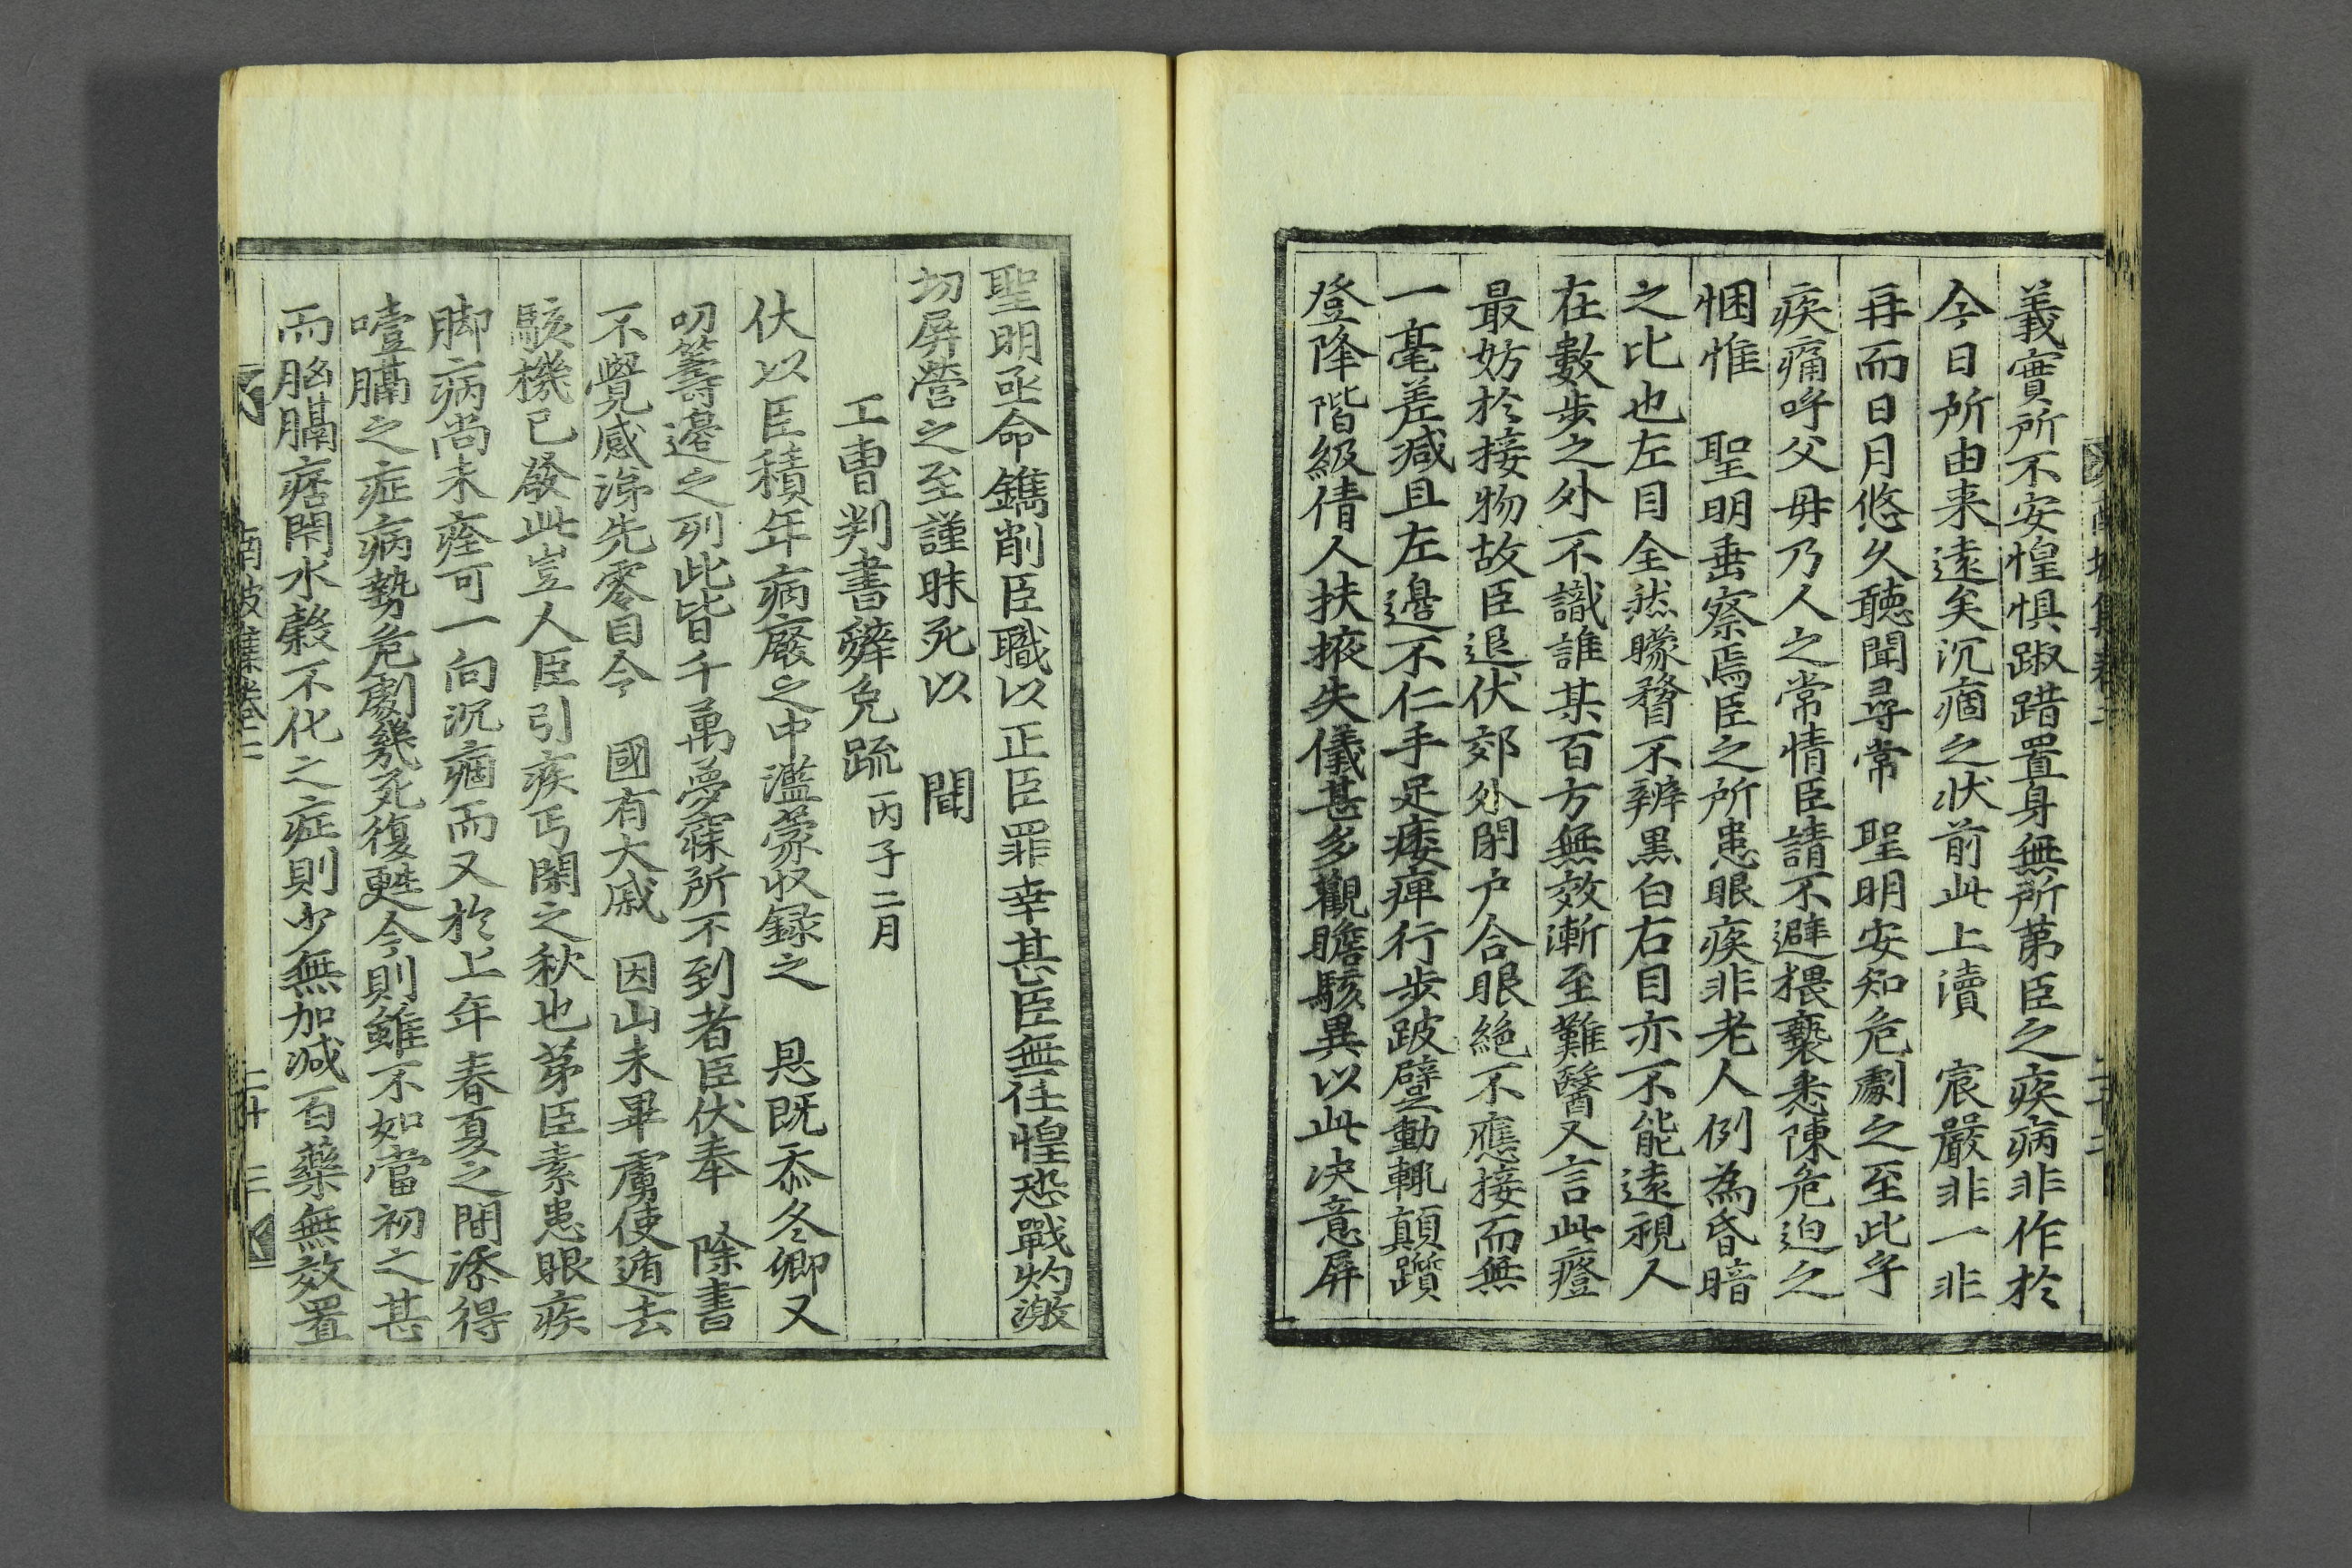 義實所不安惶惧踧踖置身無所第臣之疾病非作於
今日所由来遠矣沉痼之状前此上瀆　宸嚴非一非
再而日月悠久聴聞尋常　聖明安知危劇之至此乎
疾痛呼父母乃人之常情臣請不避猥褻悉陳危迫之
悃惟　聖明垂察焉臣之所患眼疾非老人例為昏暗
之比也左目全然矇瞀不辨黒白右目亦不能遠視人
在數步之外不識誰某百方無效漸至難醫又言此證
最妨於接物故臣退伏郊外閉户合眼絶不應接而無
一毫差减且左邊不仁手足痿痺行步跛躄動輒顛躓
登降階級倩人扶掖失儀甚多觀瞻駭異以此决意屏
聖明亟命鐫削臣職以正臣罪幸甚臣無任惶恐戰灼激
切屏營之至謹昧死以　聞
工曹判書辭免疏 丙子二月
伏以臣積年病廢之中濫蒙收録之　恩既忝冬卿又
叨籌邊之列此皆千萬夢寐所不到者臣伏奉　除書
不覺感涕先零目今　國有大戚　因山未畢虜使遁去
駭機已發此豈人臣引疾丐閑之秋也第臣素患眼疾
脚病尚未痊可一向沉痼而又於上年春夏之間添得
噎膈之症病勢危劇幾死復甦今則雖不如當初之甚
而胸膈痞閉水糓不化之症則少無加减百藥無效置
卷二
二十三